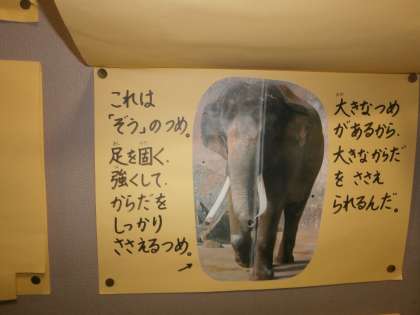 これは
「ぞう」のつめ。
足を固く、
強くして、
からだを
しっかり
ささえるつめ。
大きなつめ
があるから、
大きなからだ
を ささえ
られるんだ。